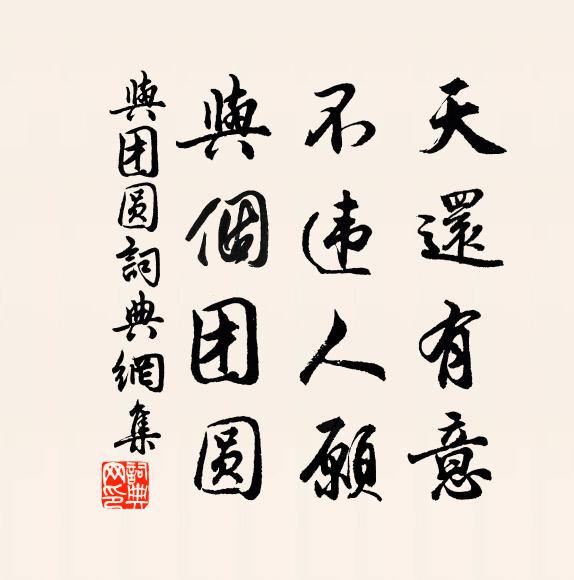 天還有意
不违人願
與個团圆
與团圆詞典網集
詞典
网印